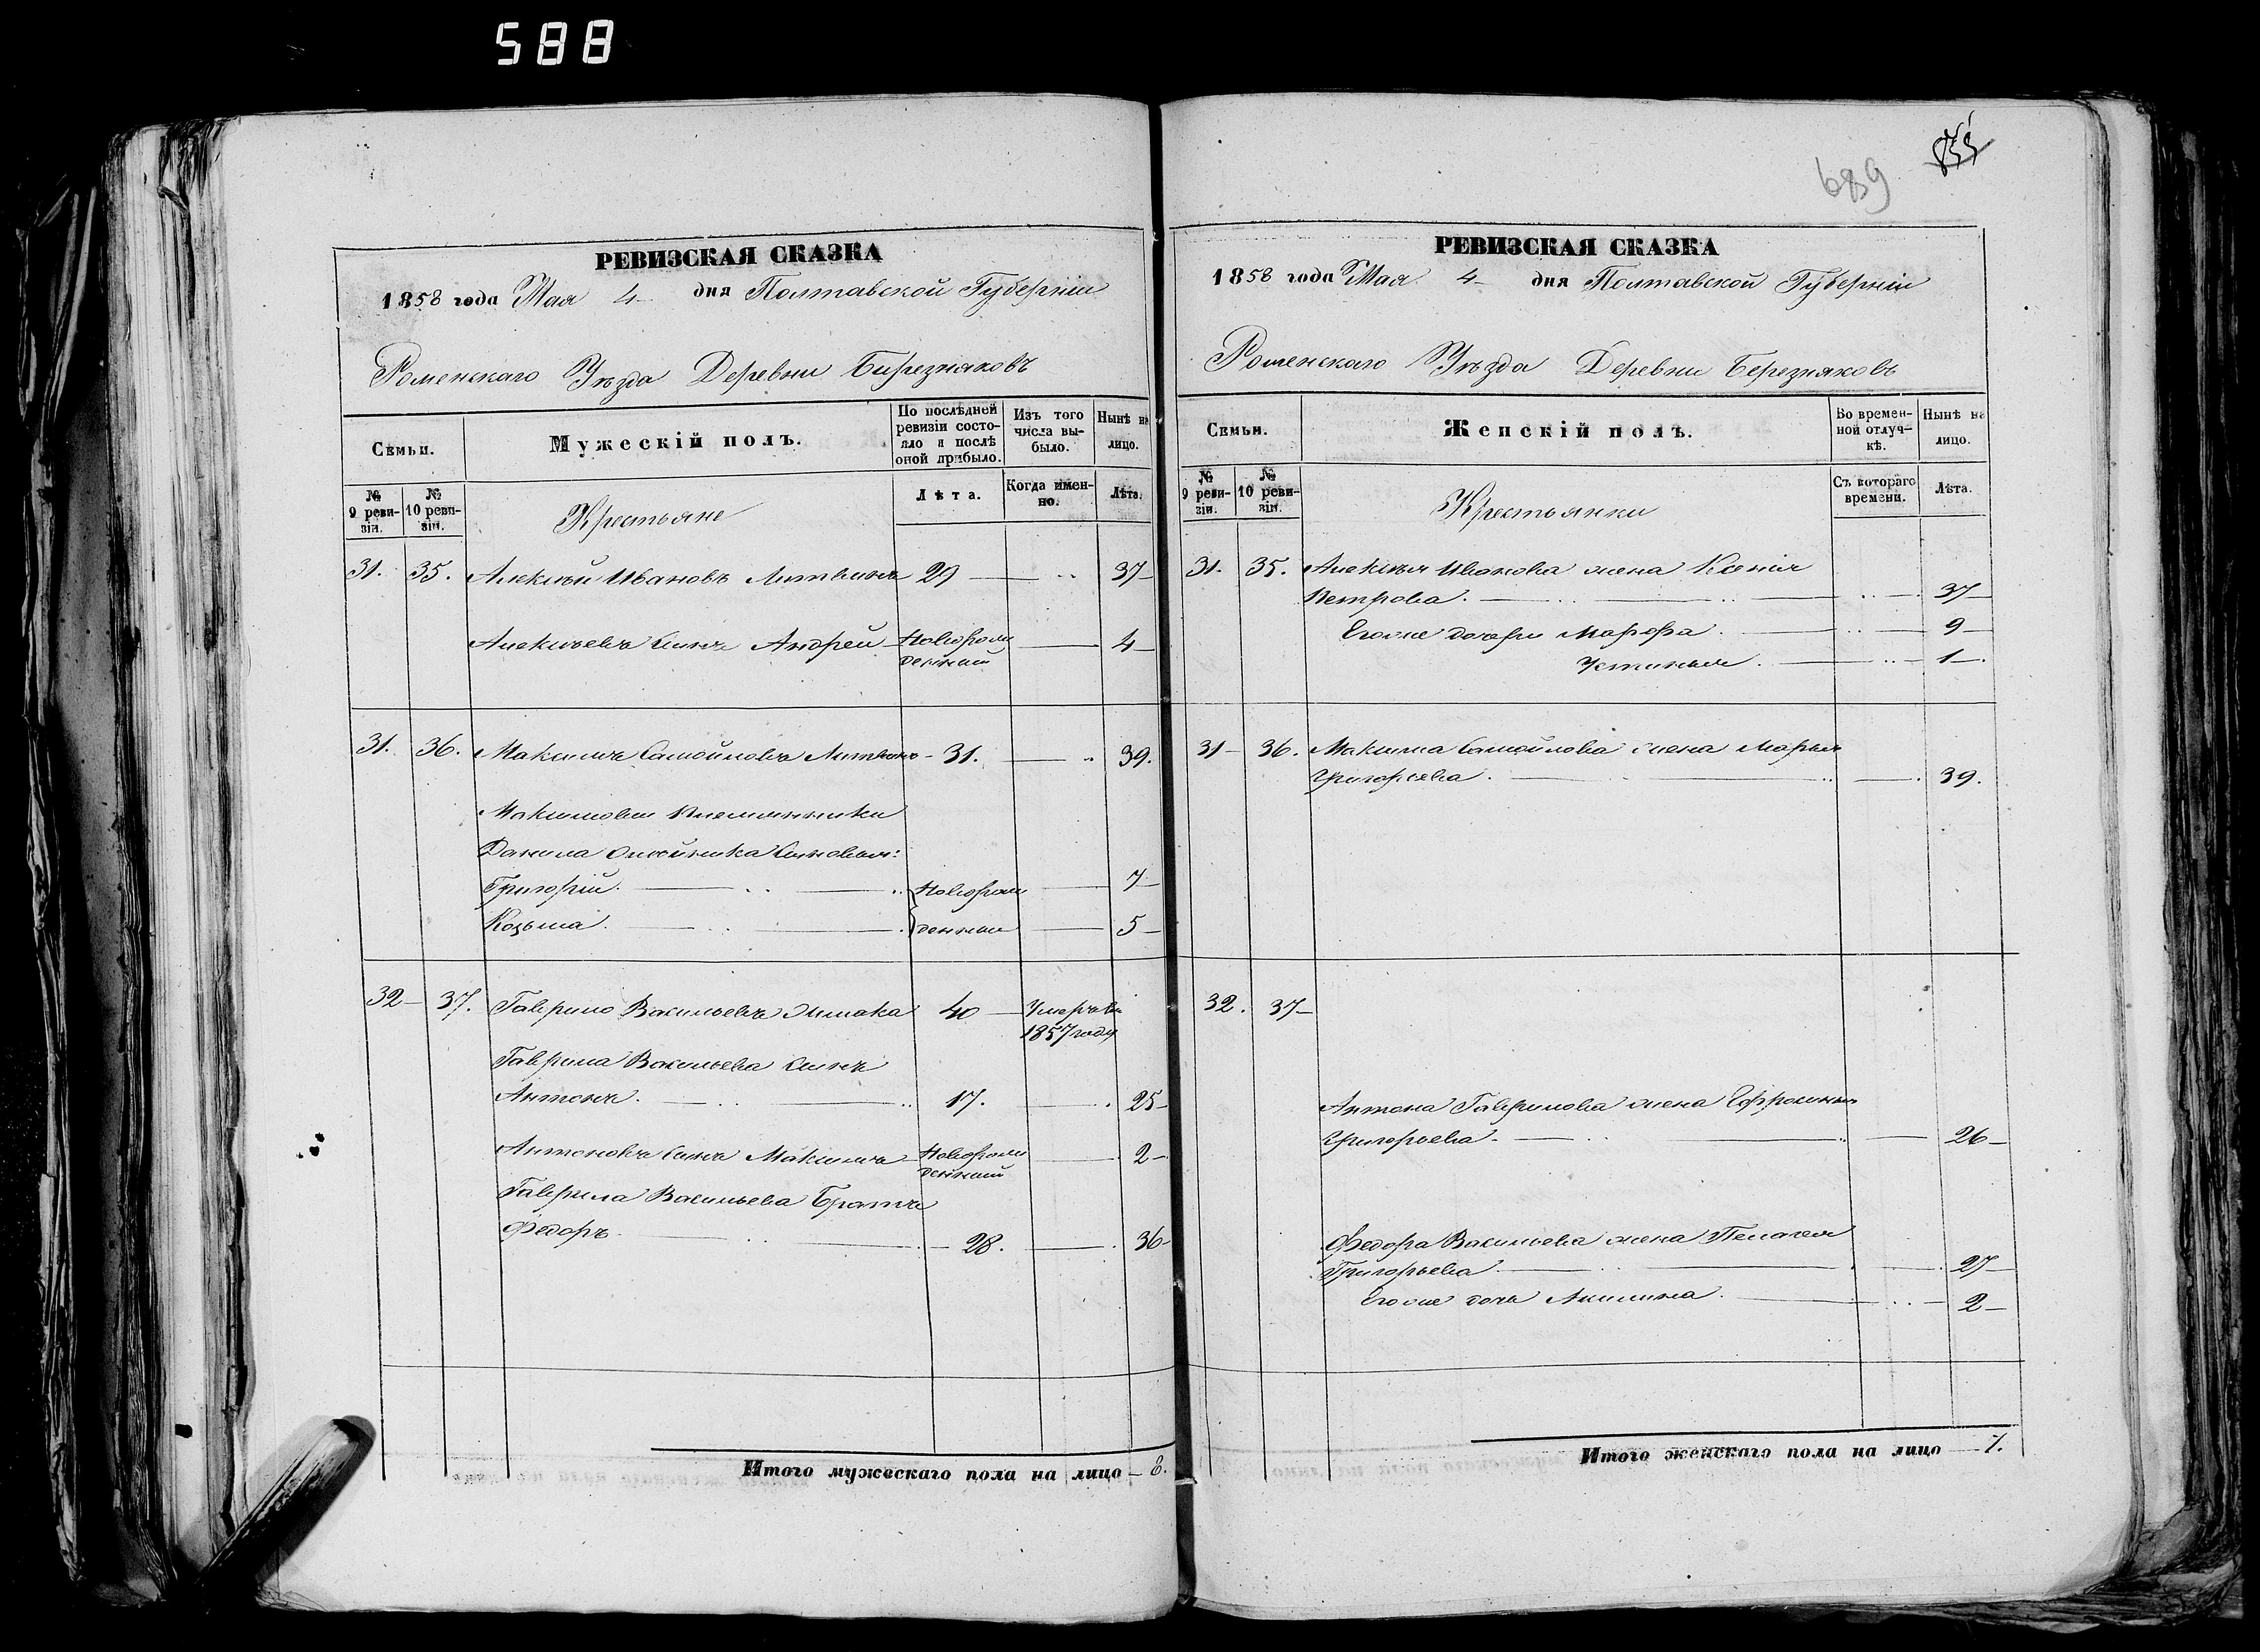 588
689
РЕВИЗСКАЯ СКАЗКА
1858 года Мая 4 дня Полтавской Губерніи
Роменскаго Уѣзда Деревни Бирезняковъ
Семьи.
Мужескій полъ.
По послѣдней ревизіи состояло и послѣ оной прибыло.
Изъ того числа выбыло.
Нынѣ на лицо.
№ 9 ревизіи.
№ 10 ревизіи.
Крестьяне
Лѣта.
Когда именно.
Лѣта.
31. 35. Алексѣй Ивановъ 29 — 37
Алексѣевъ сынъ Андрей Новорожденный — 4
31. 36. Максимъ Самойловъ 31. — 39.
Максимовы племянники
Данила Олейника сыновья:
Григорій. Новорож 7
Козьма. денные 5
32 37. Гаврило Васильевъ 40 Умеръ въ
1857 году
Гаврила Васильева сынъ
Антонъ. 17. — 25
Антоновъ сынъ Максимъ Новорожденный — 2
Гаврила Васильева братъ
Федоръ. 28. — 36
Итого мужескаго пола на лицо — 8.
РЕВИЗСКАЯ СКАЗКА
1858 года Мая 4 дня Полтавской Губерніи
Роменскаго Уѣзда Деревни Березняковъ
Семьи.
Женскій полъ.
Во временной отлучкѣ.
Нынѣ на лицо.
№ 9 ревизіи.
№ 10 ревизіи.
Крестьянки
Съ котораго времени.
Лѣта.
31. 35. Алексѣя Иванова жена Ксенія
Петрова. 37
Егоже дочери Марфа. 9
Устинья. 1
31 36. Максима Самойлова жена Марья
Григорьева. 39.
32. 37
Антона Гаврилова жена Ефросинья
Григорьева. 26
Федора Васильева жена Пелагея
Григорьева. 27
Егоже дочь Акилина. 2
Итого женскаго пола на лицо — 7.